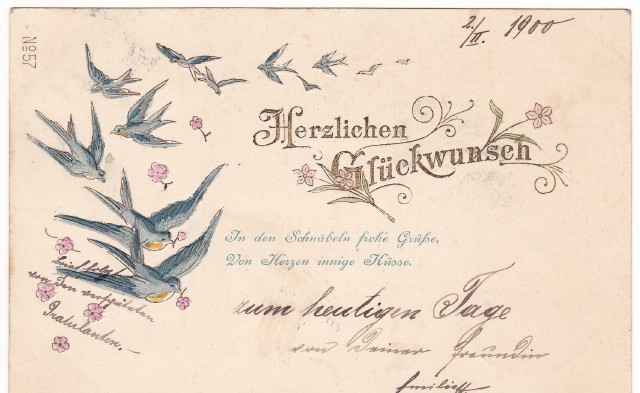 No 57
2./II. 1900
Herzlichen
Glückwunsch
In den Schnäbeln frohe Grüße,
Von Herzen innige Küsse.
zum heutigen Tage
von Deiner Freundin
von den verspäteten